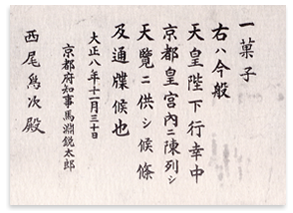 一菓子
右ハ今般
天皇陛下行幸中
京都皇宮内ニ陳列シ
天覧ニ供シ候條
及通牒候也
大正八年十一月三十日
京都府知事馬淵鋭太郎
西尾為次殿